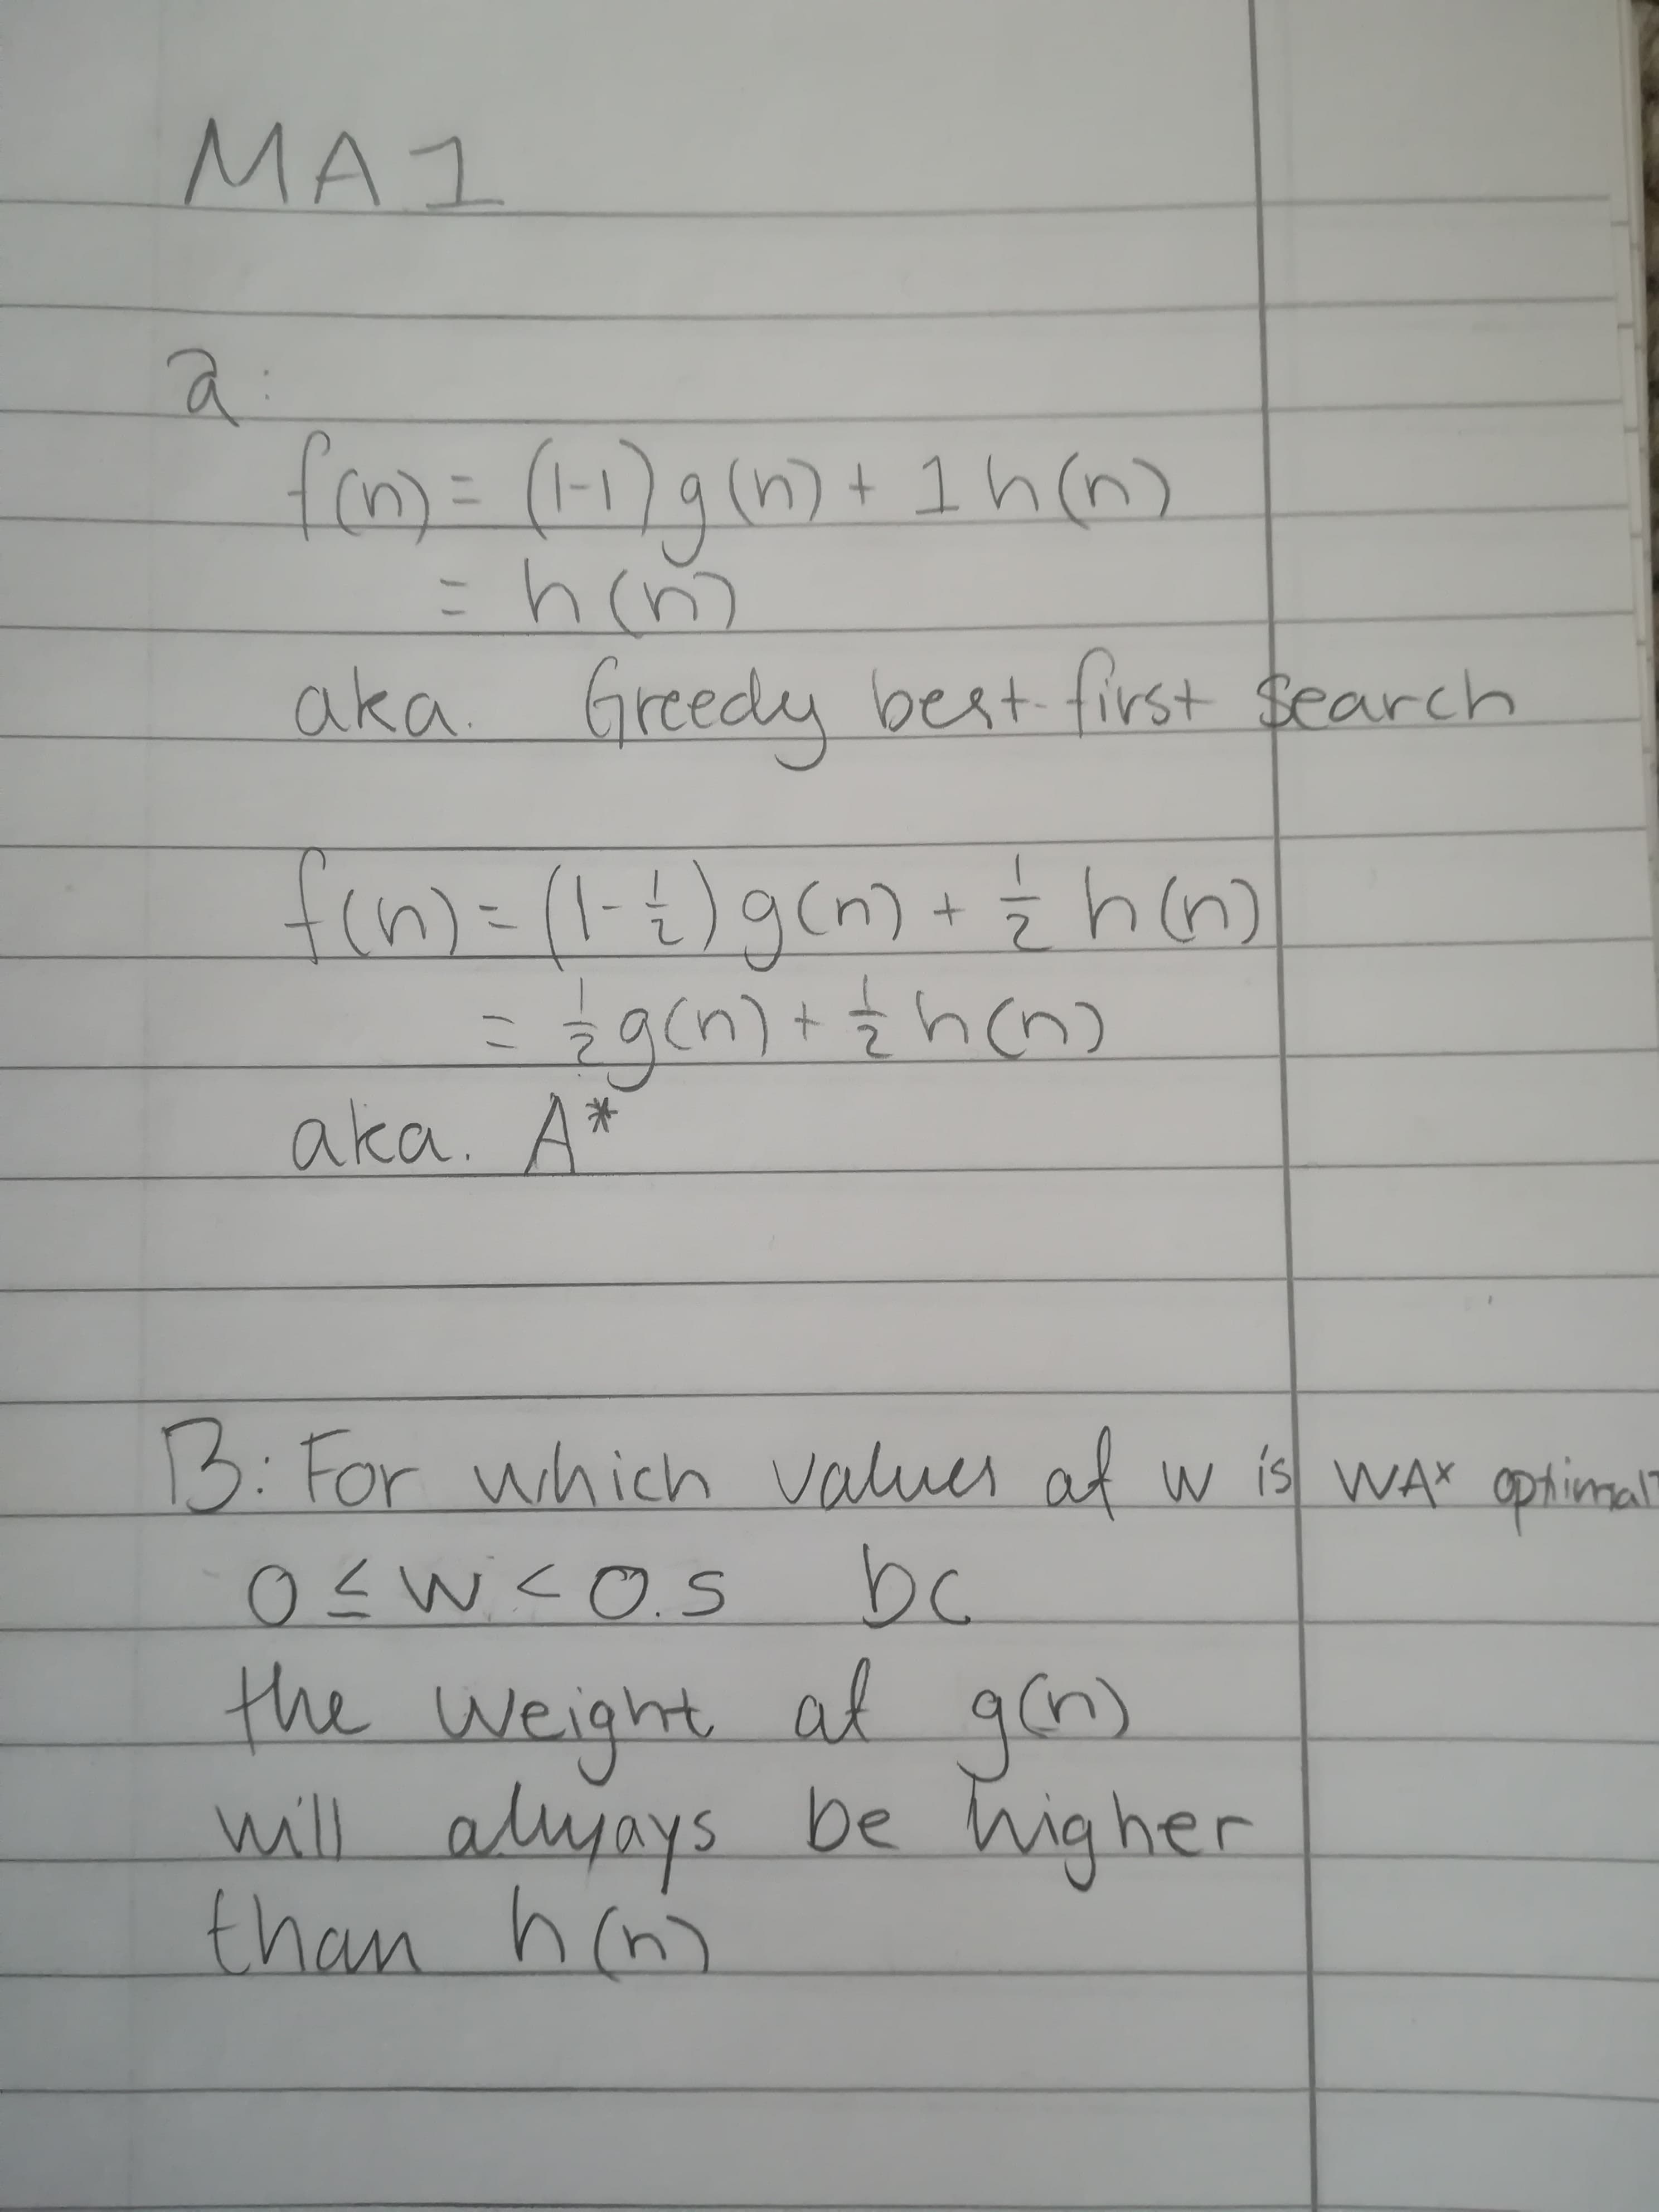 MA 1
a:
f(n) = (1-1) g(n) + 1 h(n)
= h(n)
aka. Greedy best-first search
f(n) = (1-½) g(n) + ½ h(n)
= ½ g(n) + ½ h(n)
aka. A*
B: For which values af w is WA* optimal?
0 ≤ w < 0.5 bc
the weight af g(n)
will always be higher
than h(n)